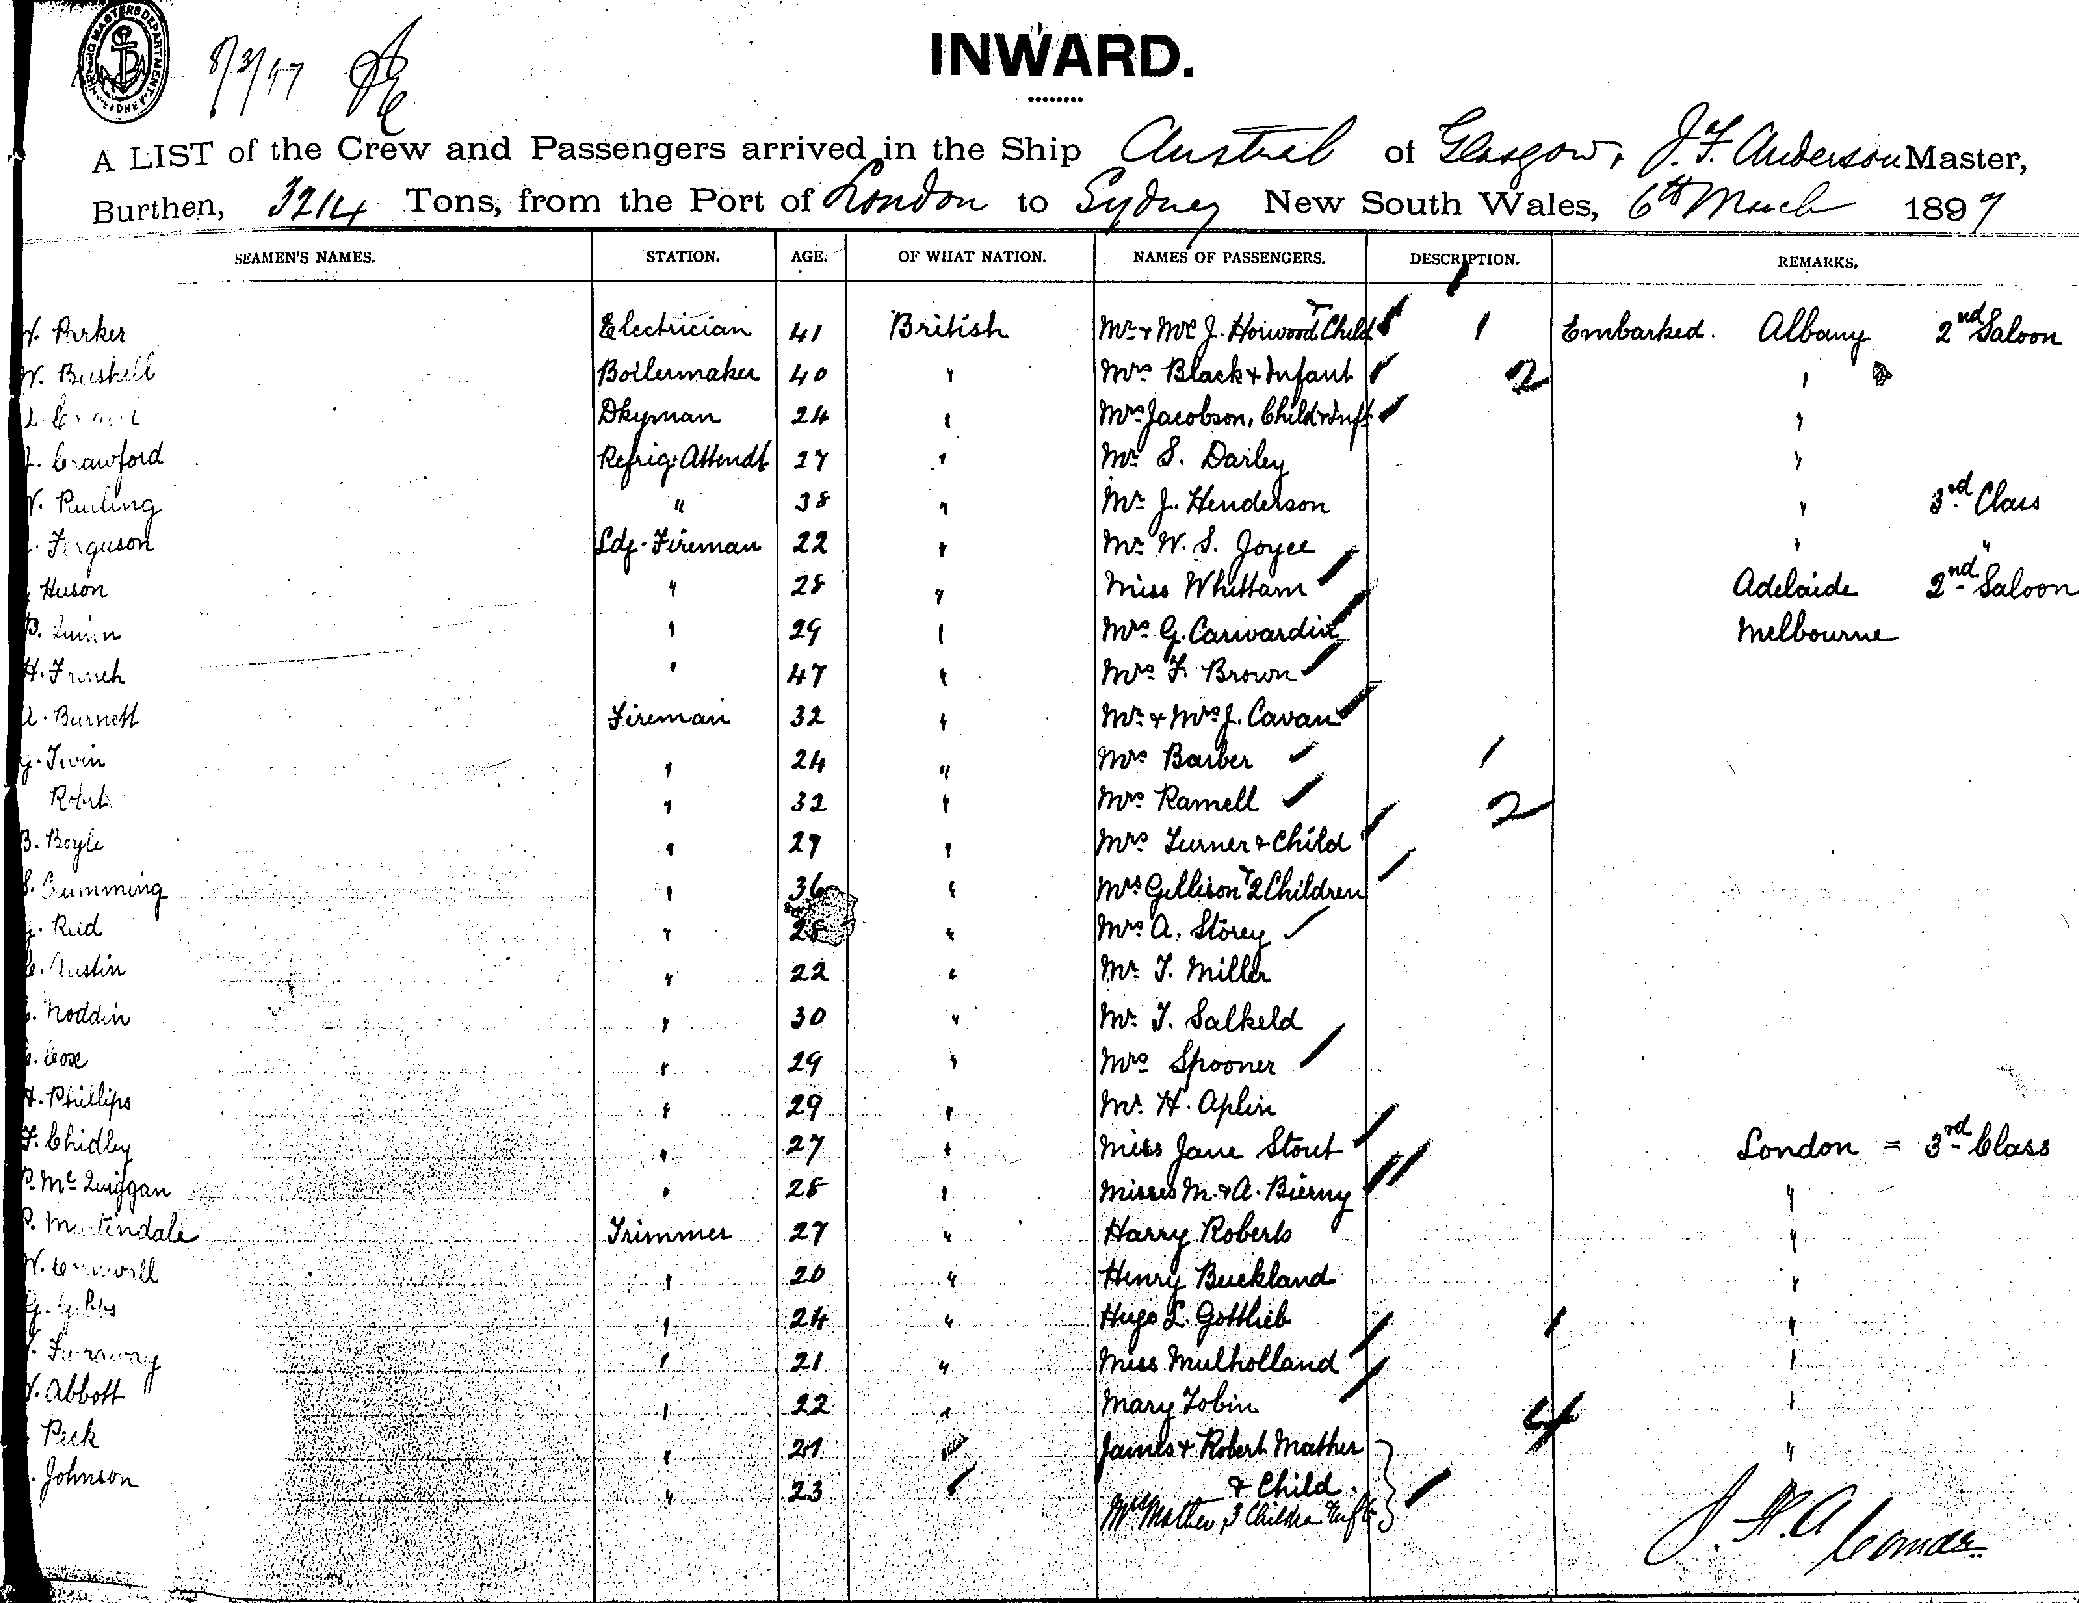 8/3/97
INWARD.
A LIST of the Crew and Passengers arrived in the Ship Austral of Glasgow, J. F. Anderson Master,
Burthen, 3214 Tons, from the Port of London to Sydney New South Wales, 6th March 1897
SEAMEN'S NAMES. STATION. AGE. OF WHAT NATION. NAMES OF PASSENGERS. DESCRIPTION. REMARKS.
Parker Electrician 41 British Mr & Mrs J. Horwood & Child 1 Embarked. Albany 2nd Saloon
W. Bushell Boilermaker 40 " Mrs Black & Infant 2 "
Dkyman 24 " Mrs Jacobson, Child & Inft "
Crawford Refrig. Attendt 27 " Mr S. Darley "
Pauling " 38 " Mr J. Henderson " 3rd Class
Ferguson Ldg. Fireman 22 " Mr W. S. Joyce " "
Huson " 28 " Miss Whittam Adelaide 2nd Saloon
B. Quinn " 29 " Mrs G. Carwardine Melbourne
H. French " 47 " Mrs F. Brown
A. Burnett Fireman 32 " Mr & Mrs J. Cavan
Irvin " 24 " Mrs Barber 1
Robert " 32 " Mrs Ramell 2
B. Boyle " 27 " Mrs Turner & Child
S. Cumming " 36 " Mrs Gellison & 2 Children
Reid " 28 " Mrs A. Storey
Austin " 22 " Mr T. Miller
Noddin " 30 " Mr T. Salkeld
Cox " 29 " Mrs Spooner
H. Phillips " 29 " Mr H. Aplin
F. Chidley " 27 " Miss Jane Stout London = 3rd Class
P. McQuiggan " 28 " Misses M. & A. Bierny "
P. Trimmer 27 " Harry Roberts "
W. " 20 " Henry Buckland "
G. " 24 " Hugo L. Gottlieb "
" 21 " Miss Mulholland "
Abbott " 22 " Mary Tobin 4 "
Peck " 21 " James & Robert Mather "
Johnson " 23 " & Child
Mrs Mather, 3 Children Inft
J. F. A
Comdr.